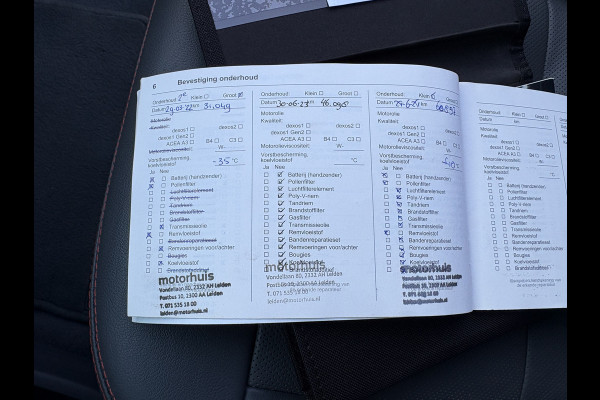 6 Bevestiging onderhoud
Onderhoud: Klein Groot
Datum 29-03-22 km 31.049
Motorolie
Kwaliteit:
dexos1 dexos2
dexos1 Gen2
ACEA A3 B4 C3
Motorolieviscositeit: W-
Vorstbescherming,
koelvloeistof -35 °C
Ja Nee
Batterij (handzender)
Pollenfilter
Luchtfilterelement
Poly-V-riem
Tandriem
Brandstoffilter
Gasfilter
Transmissieolie
Remvloeistof
Bandenreparatieset
Remvoeringen voor/achter
Bougies
Koelvloeistof
Brandstofadditief
motorhuis
Vondellaan 80, 2332 AH Leiden
Postbus 10, 2300 AA Leiden
T. 071 535 18 00
leiden@motorhuis.nl
Onderhoud: Klein Groot
Datum 30-06-23 km
Motorolie
Kwaliteit:
dexos1 dexos2
dexos1 Gen2
ACEA A3 B4 C3
Motorolieviscositeit: W-
Vorstbescherming,
koelvloeistof °C
Ja Nee
Batterij (handzender)
Pollenfilter
Luchtfilterelement
Poly-V-riem
Tandriem
Brandstoffilter
Gasfilter
Transmissieolie
Remvloeistof
Bandenreparatieset
Remvoeringen voor/achter
Bougies
Koelvloeistof
Brandstofadditief
motorhuis
Vondellaan 80, 2332 AH Leiden
Postbus 10, 2300 AA Leiden
T. 071 535 18 00
leiden@motorhuis.nl
Onderhoud: Klein Groot
Datum km
Motorolie
Kwaliteit:
dexos1 dexos2
dexos1 Gen2
ACEA A3 B4 C3
Motorolieviscositeit: W-
Vorstbescherming,
koelvloeistof °C
Ja Nee
Batterij (handzender)
Pollenfilter
Luchtfilterelement
Poly-V-riem
Tandriem
Brandstoffilter
Gasfilter
Transmissieolie
Remvloeistof
Bandenreparatieset
Remvoeringen voor/achter
Bougies
Koelvloeistof
motorhuis
Vondellaan 80, 2332 AH Leiden
Postbus 10, 2300 AA Leiden
T. 071 535 18 00
leiden@motorhuis.nl
Onderhoud: Klein Groot
Datum km
Motorolie
Kwaliteit:
dexos1 dexos2
dexos1 Gen2
ACEA A3 B4 C3
Motorolieviscositeit: W-
Vorstbescherming,
koelvloeistof °C
Ja Nee
Batterij (handzender)
Pollenfilter
Luchtfilterelement
Poly-V-riem
Tandriem
Brandstoffilter
Gasfilter
Transmissieolie
Remvloeistof
Bandenreparatieset
Remvoeringen voor/achter
Bougies
Koelvloeistof
Brandstofadditief